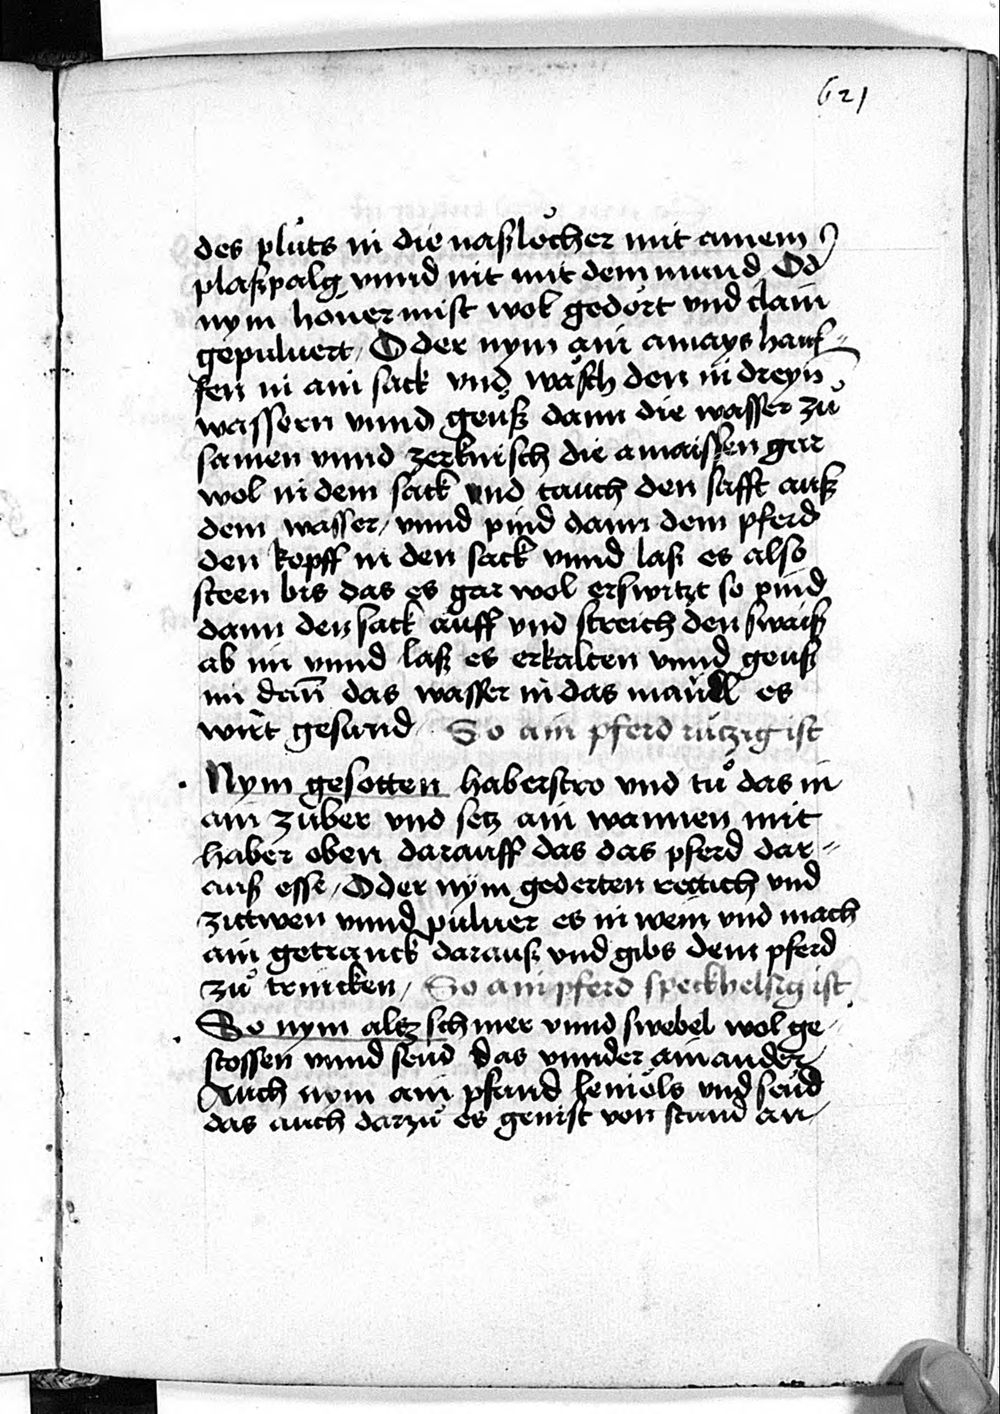 621
des plůts in die naßlöcher mit ainem
plaßpalg vnnd nit mit dem mund Od
nym honer mist wol gedört vnd clain
gepuluert / Oder nym ain amays hauf-
fen in ain sack vnd wäsch den in dreyn
wassern vnnd geuß dann die wasser zů
samen vnnd zerknisch die amaissen gar
wol in dem sack vnd tauch den safft auß
dem wasser / vnnd pind dann dem pferd
den kopff in den sack vnnd laß es also
steen bis das es gar wol erswitzt so pind
dann den sack auff vnd streich den swaiß
ab im vnnd laß es erkalten vnnd geuß
im dan̄ das wasser in das maul es
wirt gesund / So ain pferd rützig ist
Nym gesotten haberstro vnd tů das in
ain zuber vnd setz ain wannen mit
haber oben darauff das das pferd dar-
auß esse / Oder nÿm gederten rettich vnd
zittwen vnnd puluer es in wein vnd mach
ain getranck darauß vnd gibs dem pferd
zů trincken / So ain pferd speckhelsig ist
So nym altz schmer vnnd swebel wol ge-
stossen vnnd seud das vnnder ainander /
Auch nym ain pfund leinöls vnd seud
das auch darzů es genist von stund an /